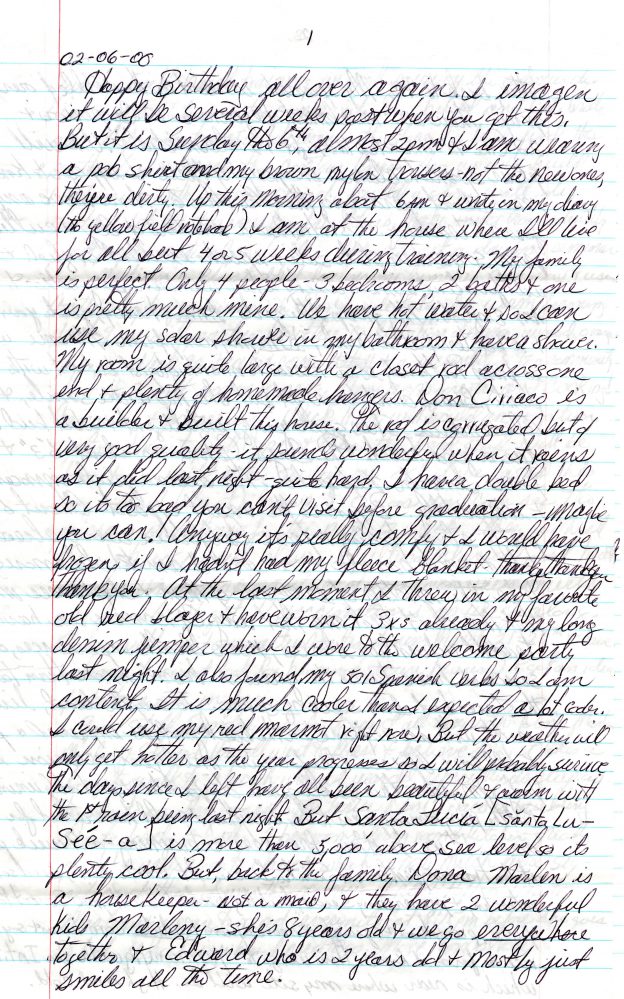 1
02-06-00
Happy Birthday all over again. I imagen
it will be several weeks past when you get this.
But it is Sunday the 6th, almost 2pm & I am wearing
a pob shirt and my brown nylon trousers - not the new ones,
they're dirty. Up this morning about 6am & writing in my diary
(the yellow field notebook) I am at the house where I'll live
for all but 4 or 5 weeks during training. My family
is perfect. Only 4 people - 3 bedrooms, 2 baths & one
is pretty much mine. We have hot water & so I can
use my solar shower in my bathroom & have a shower.
My room is quite large with a closet rod across one
end & plenty of homemade hangers. Don Ciriaco is
a builder & built this house. The roof is corrugated but of
very good quality - it sounds wonderful when it rains
as it did last night - quite hard. I have a double bed
so its too bad you can't visit before graduation - maybe
you can! Anyway it's really comfy & I would have
frozen if I hadn't had my fleece blanket. thank you thank you
thank you. At the last moment I threw in my favorite
old red blazer & have worn it 3xs already & my long
denim jumper which I wore to the welcome party
last night. I also found my 501 Spanish verbs so I am
content. It is much cooler than I expected a lot cooler.
I could use my red marmot right now. But the weather will
only get hotter as the year progresses so I will probably survive
The days since I left have all been beautiful & warm with
the 1st rain being last night. But Santa Lucía [Santa Lu-
See-a] is more than 5,000' above sea level so its
plenty cool. But, back to the family. Dona Marlen is
a housekeeper - not a maid, & they have 2 wonderful
kids Marleny - she's 8 years old & we go everywhere
together & Edward who is 2 years old & mostly just
smiles all the time.